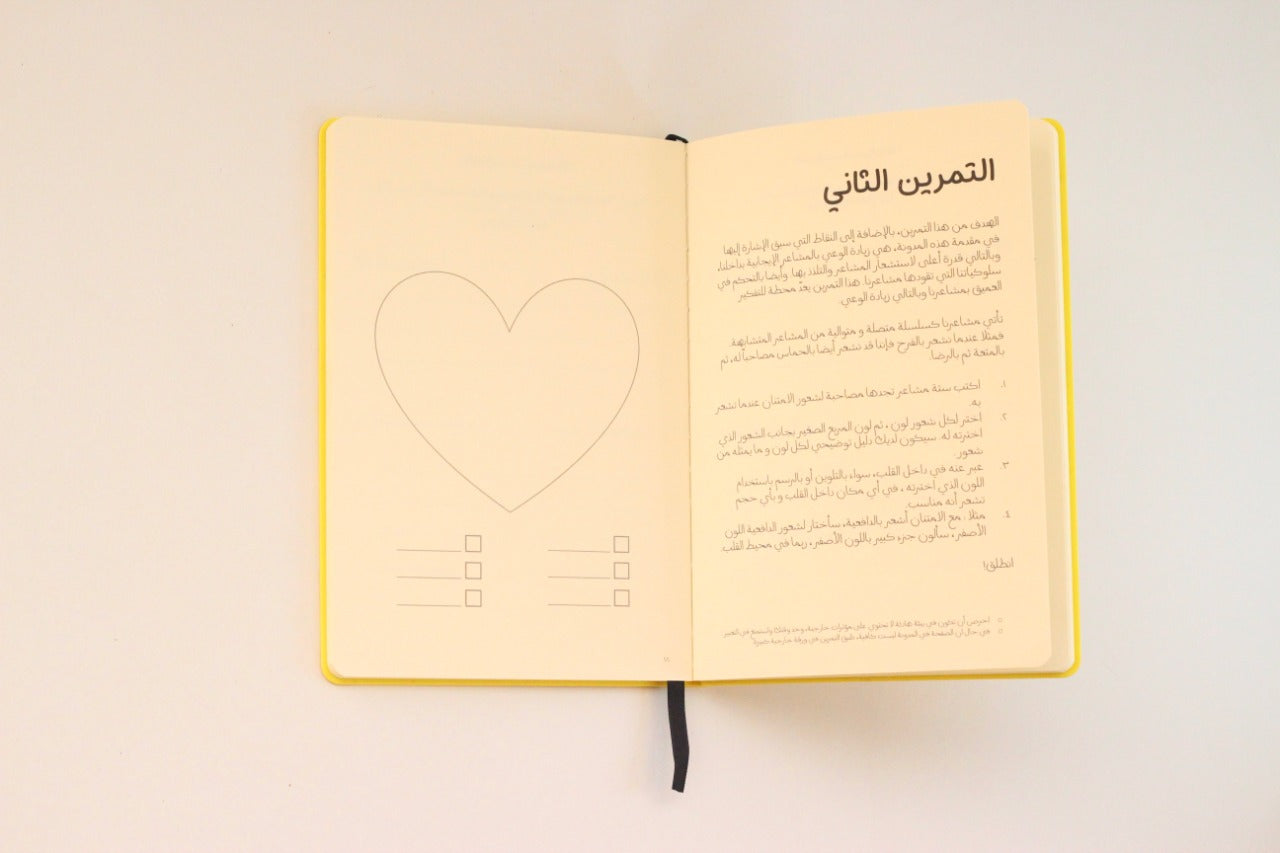 التمرين الثاني
الهدف من هذا التمرين، بالإضافة إلى النقاط التي سبق الإشارة إليها
في مقدمة هذه المدونة، هي زيادة الوعي بالمشاعر الإيجابية بداخلنا،
وبالتالي قدرة أعلى لاستشعار المشاعر والتلذذ بها. وأيضا بالتحكم في
سلوكياتنا التي تقودها مشاعرنا. هذا التمرين يعدّ محطة للتفكير
العميق بمشاعرنا وبالتالي زيادة الوعي.
تأتي مشاعرنا كسلسلة متصلة و متوالية من المشاعر المتشابهة.
فمثلا عندما نشعر بالفرح فإننا قد نشعر أيضا بالحماس مصاحباً له، ثم
بالمتعة ثم بالرضا.
١. اكتب ستة مشاعر تجدها مصاحبة لشعور الامتنان عندما تشعر
به.
٢. اختر لكل شعور لون ، ثم لون المربع الصغير بجانب الشعور الذي
اخترته له. سيكون لديك دليل توضيحي لكل لون و ما يمثله من
شعور.
٣. عبر عنه في داخل القلب، سواء بالتلوين أو بالرسم باستخدام
اللون الذي اخترته ، في أي مكان داخل القلب و بأي حجم
تشعر أنه مناسب.
٤. مثلا : مع الامتنان أشعر بالدافعية، سأختار لشعور الدافعية اللون
الأصفر ، سألون جزء كبير باللون الأصفر ، ربما في محيط القلب.
انطلق!
احرص أن تكون في بيئة هادئة لا تحتوي على مؤثرات خارجية، وخذ وقتك واستمتع في التعبير
في حال أن الصفحة في المدونة ليست كافية، طبق التمرين في ورقة خارجية كبيرة